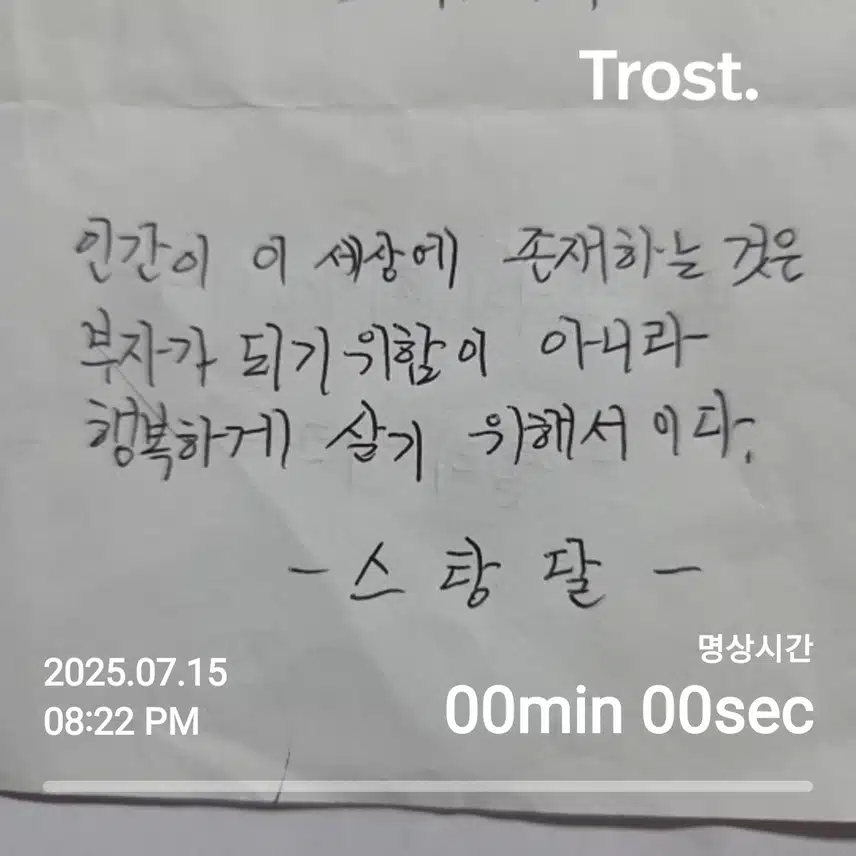 Trost.
인간이 이 세상에 존재하는 것은
부자가 되기 위함이 아니라
행복하게 살기 위해서이다.
- 스탕달 -
명상시간
2025.07.15
08:22 PM
00min 00sec